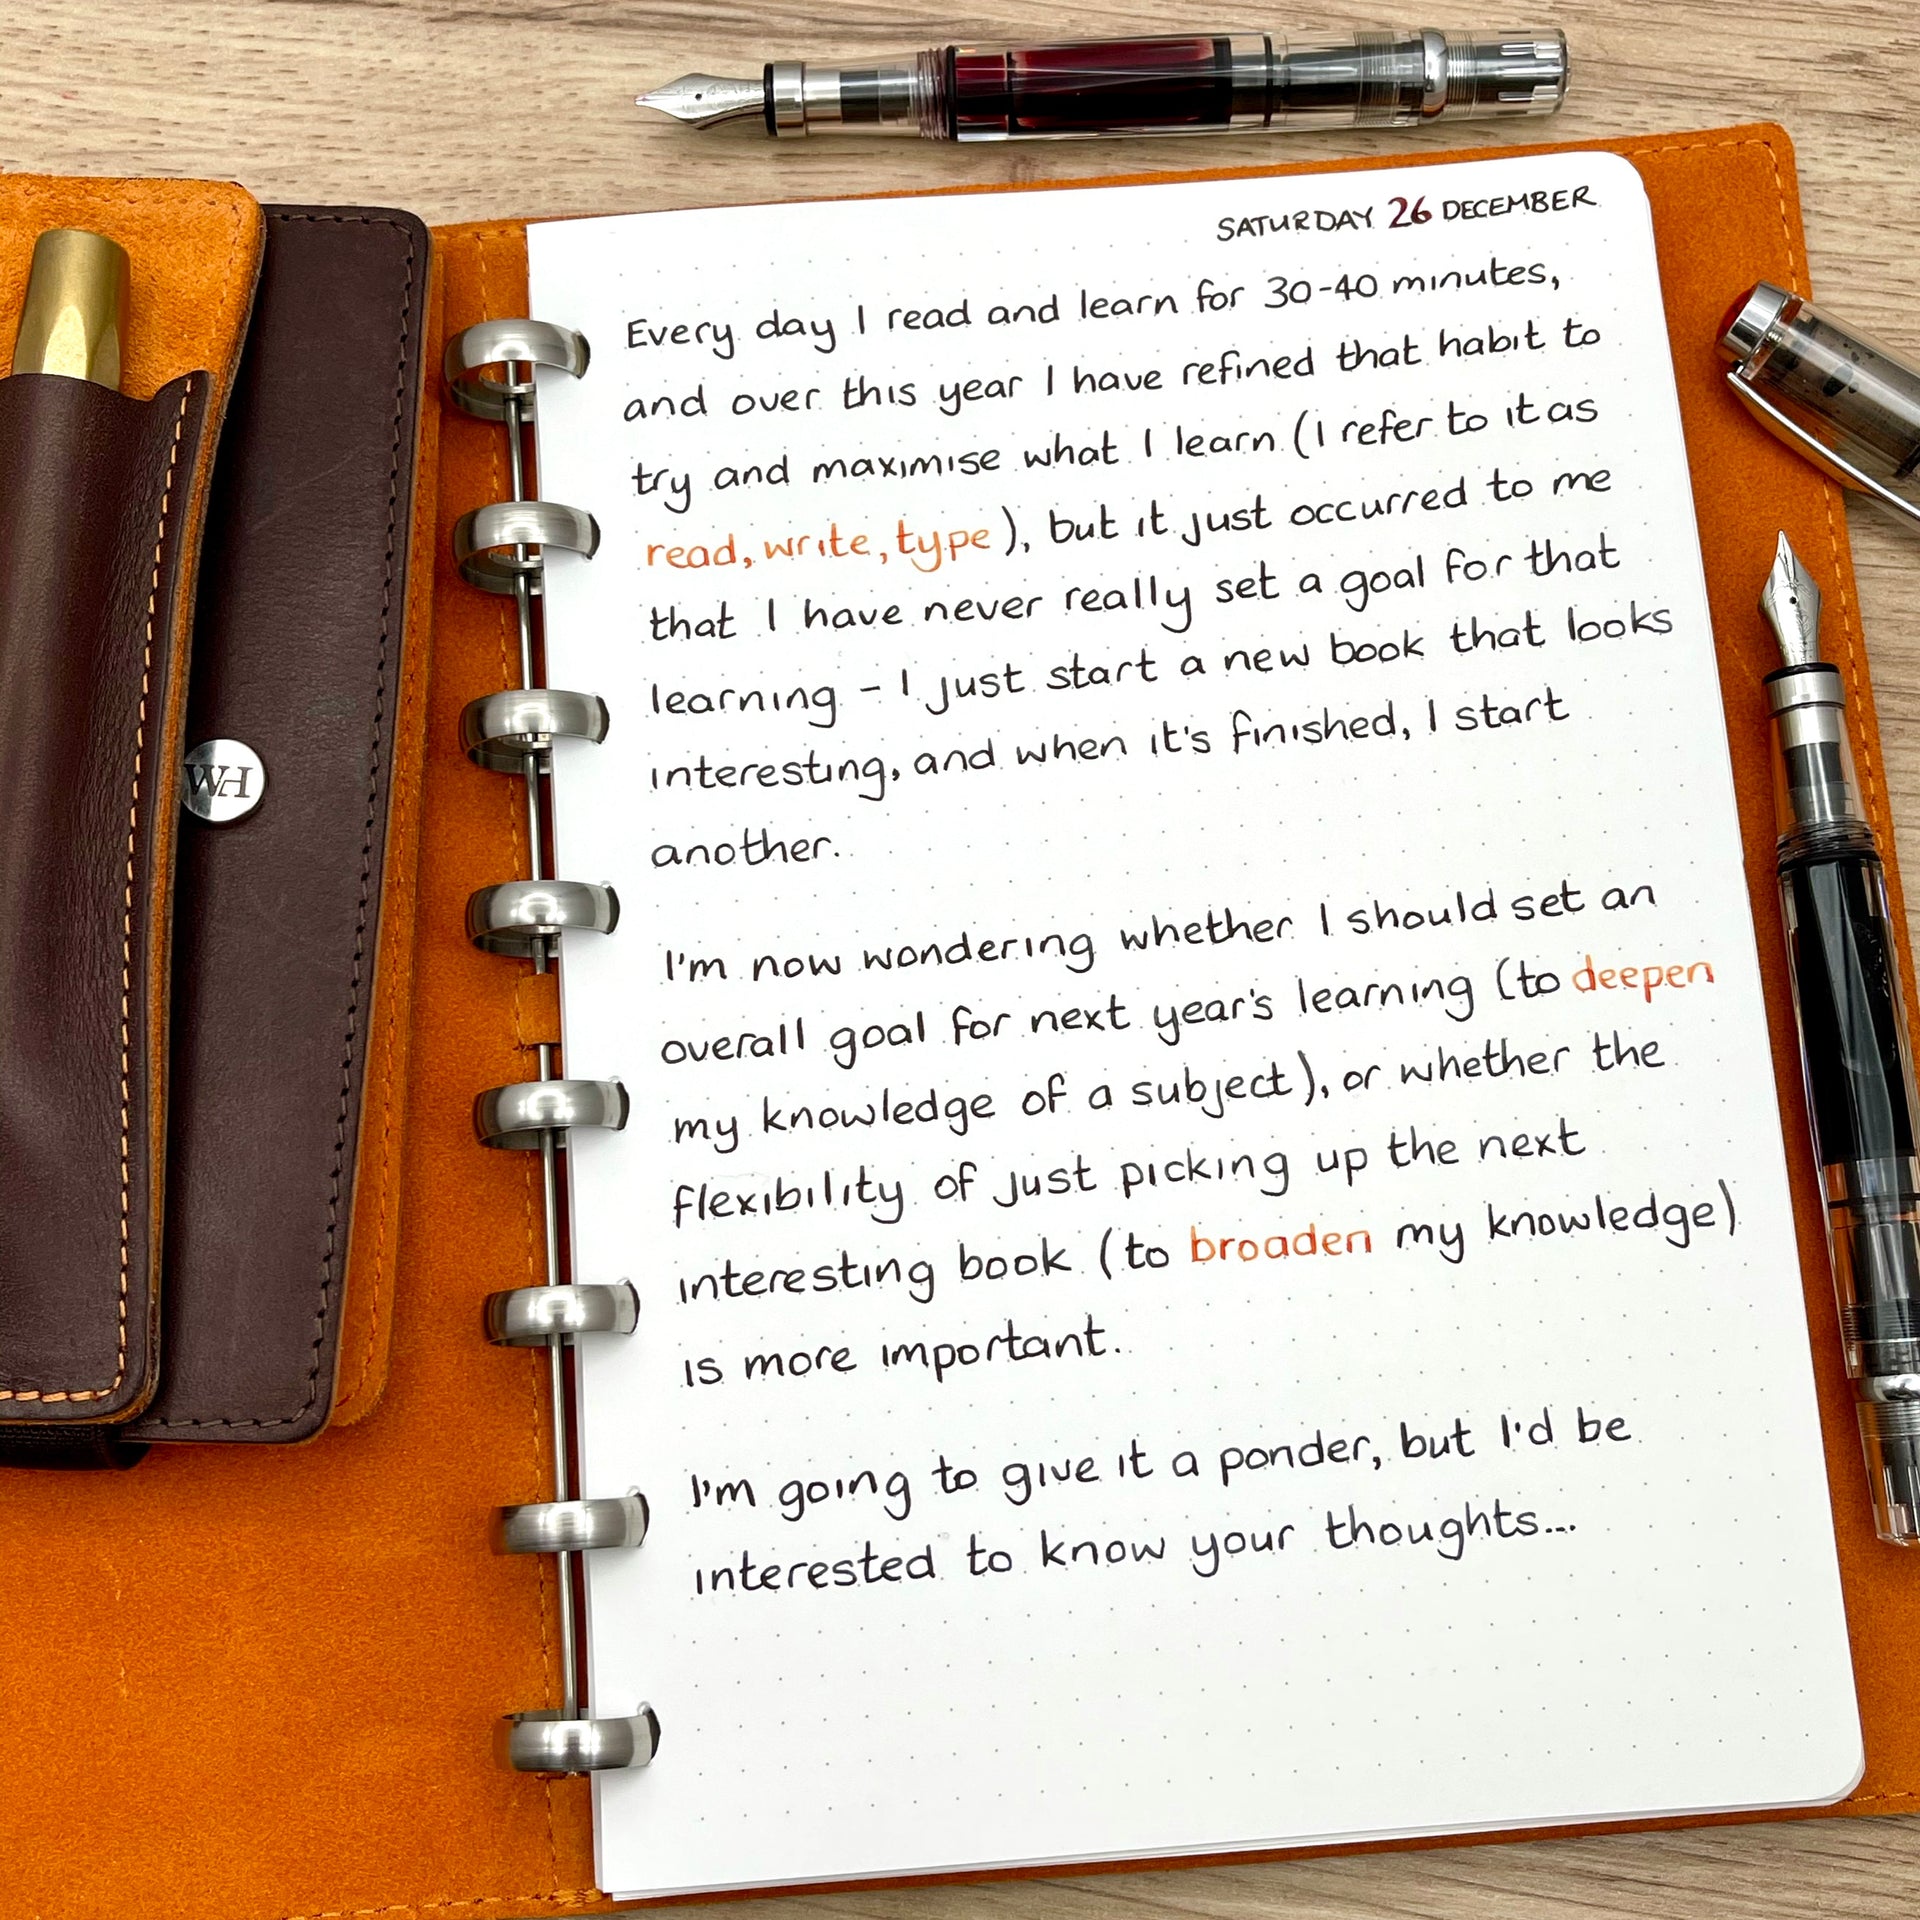 SATURDAY 26 DECEMBER
Every day I read and learn for 30-40 minutes,
and over this year I have refined that habit to
try and maximise what I learn (I refer to it as
read, write, type), but it just occurred to me
that I have never really set a goal for that
learning - I just start a new book that looks
interesting, and when it's finished, I start
another.
I'm now wondering whether I should set an
overall goal for next year's learning (to deepen
my knowledge of a subject), or whether the
flexibility of just picking up the next
interesting book (to broaden my knowledge)
is more important.
I'm going to give it a ponder, but I'd be
interested to know your thoughts...
WH